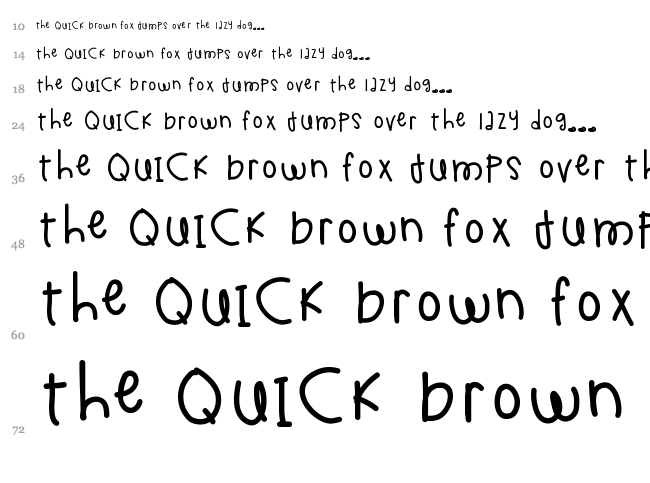 10 the QUICK brown fox jumps over the lazy dog...
14 the QUICK brown fox jumps over the lazy dog...
18 the QUICK brown fox jumps over the lazy dog...
24 the QUICK brown fox jumps over the lazy dog...
36 the QUICK brown fox jumps over th
48 the QUICK brown fox jump
60 the QUICK brown fox
72 the QUICK brown